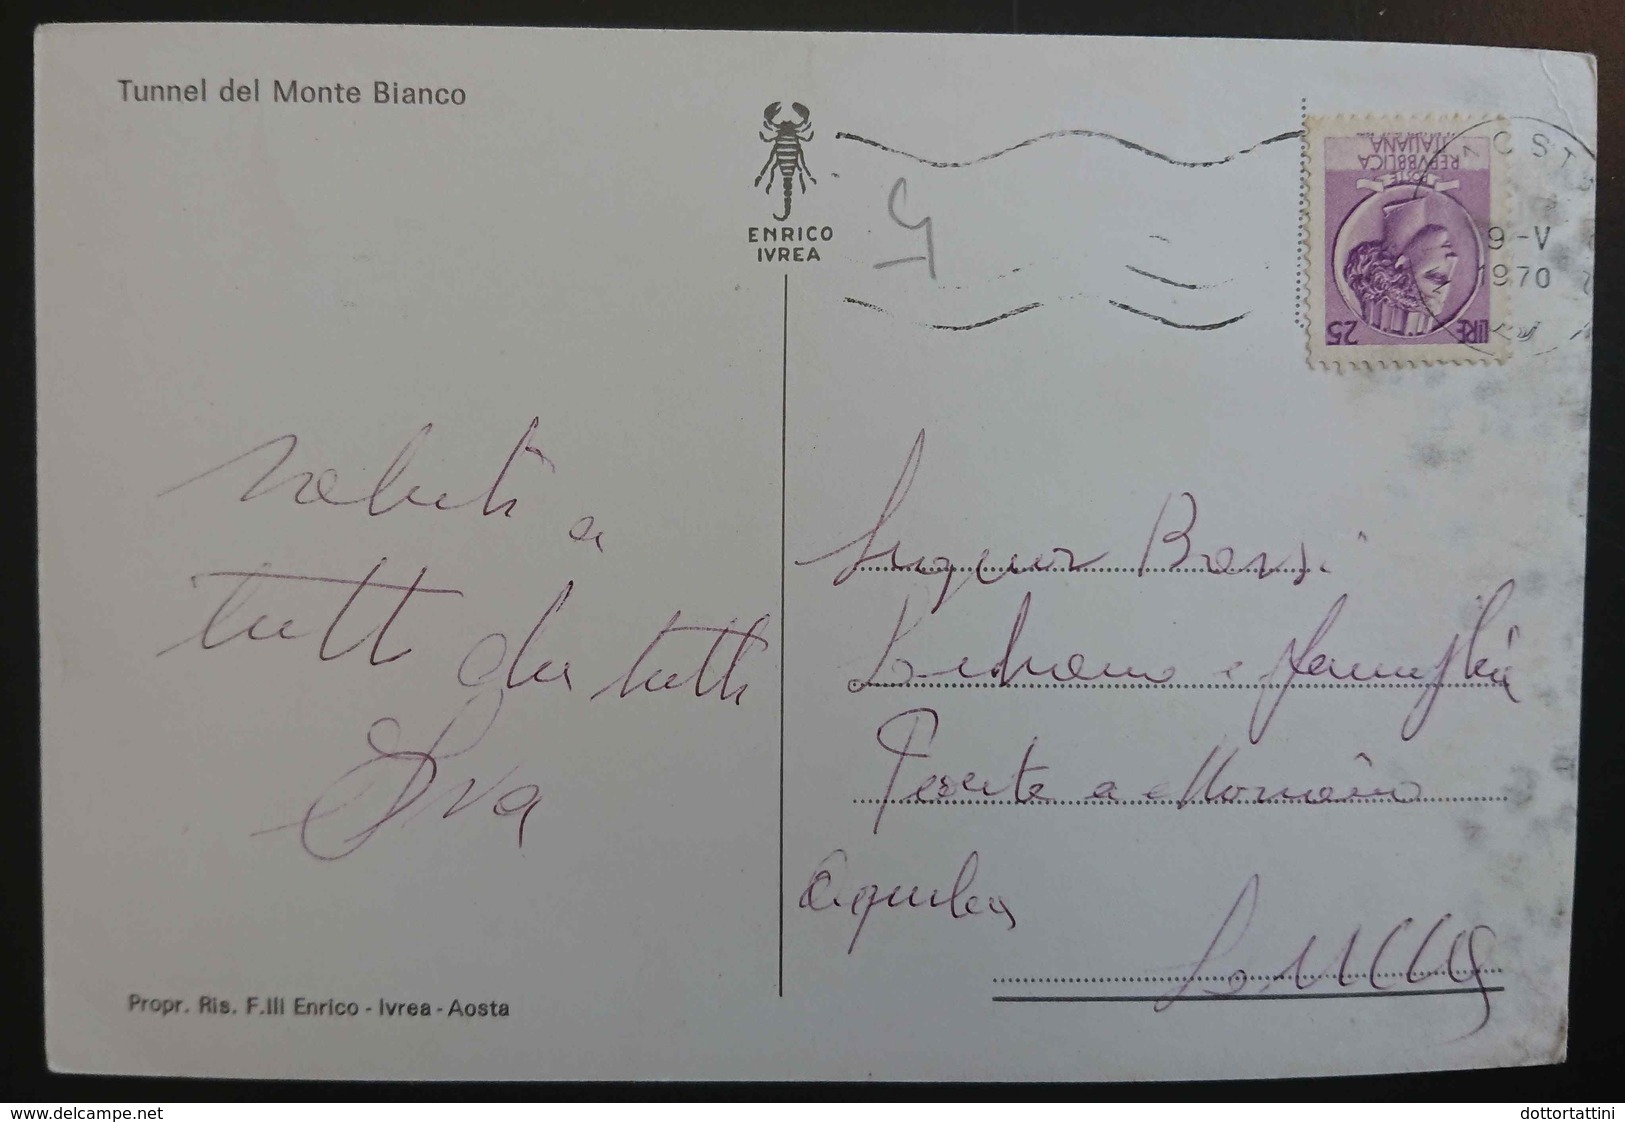 Tunnel del Monte Bianco
ENRICO
IVREA
POSTE
REPVBBLICA
ITALIANA
LIRE 25
AOSTA
9-V
1970
saluti a
tutti da tutti
Iva
Signor Bossi
e famiglia
Ponte a Moriano
Aquilea
Lucca
Propr. Ris. F.lli Enrico - Ivrea - Aosta
delcampe.net
dottortattini